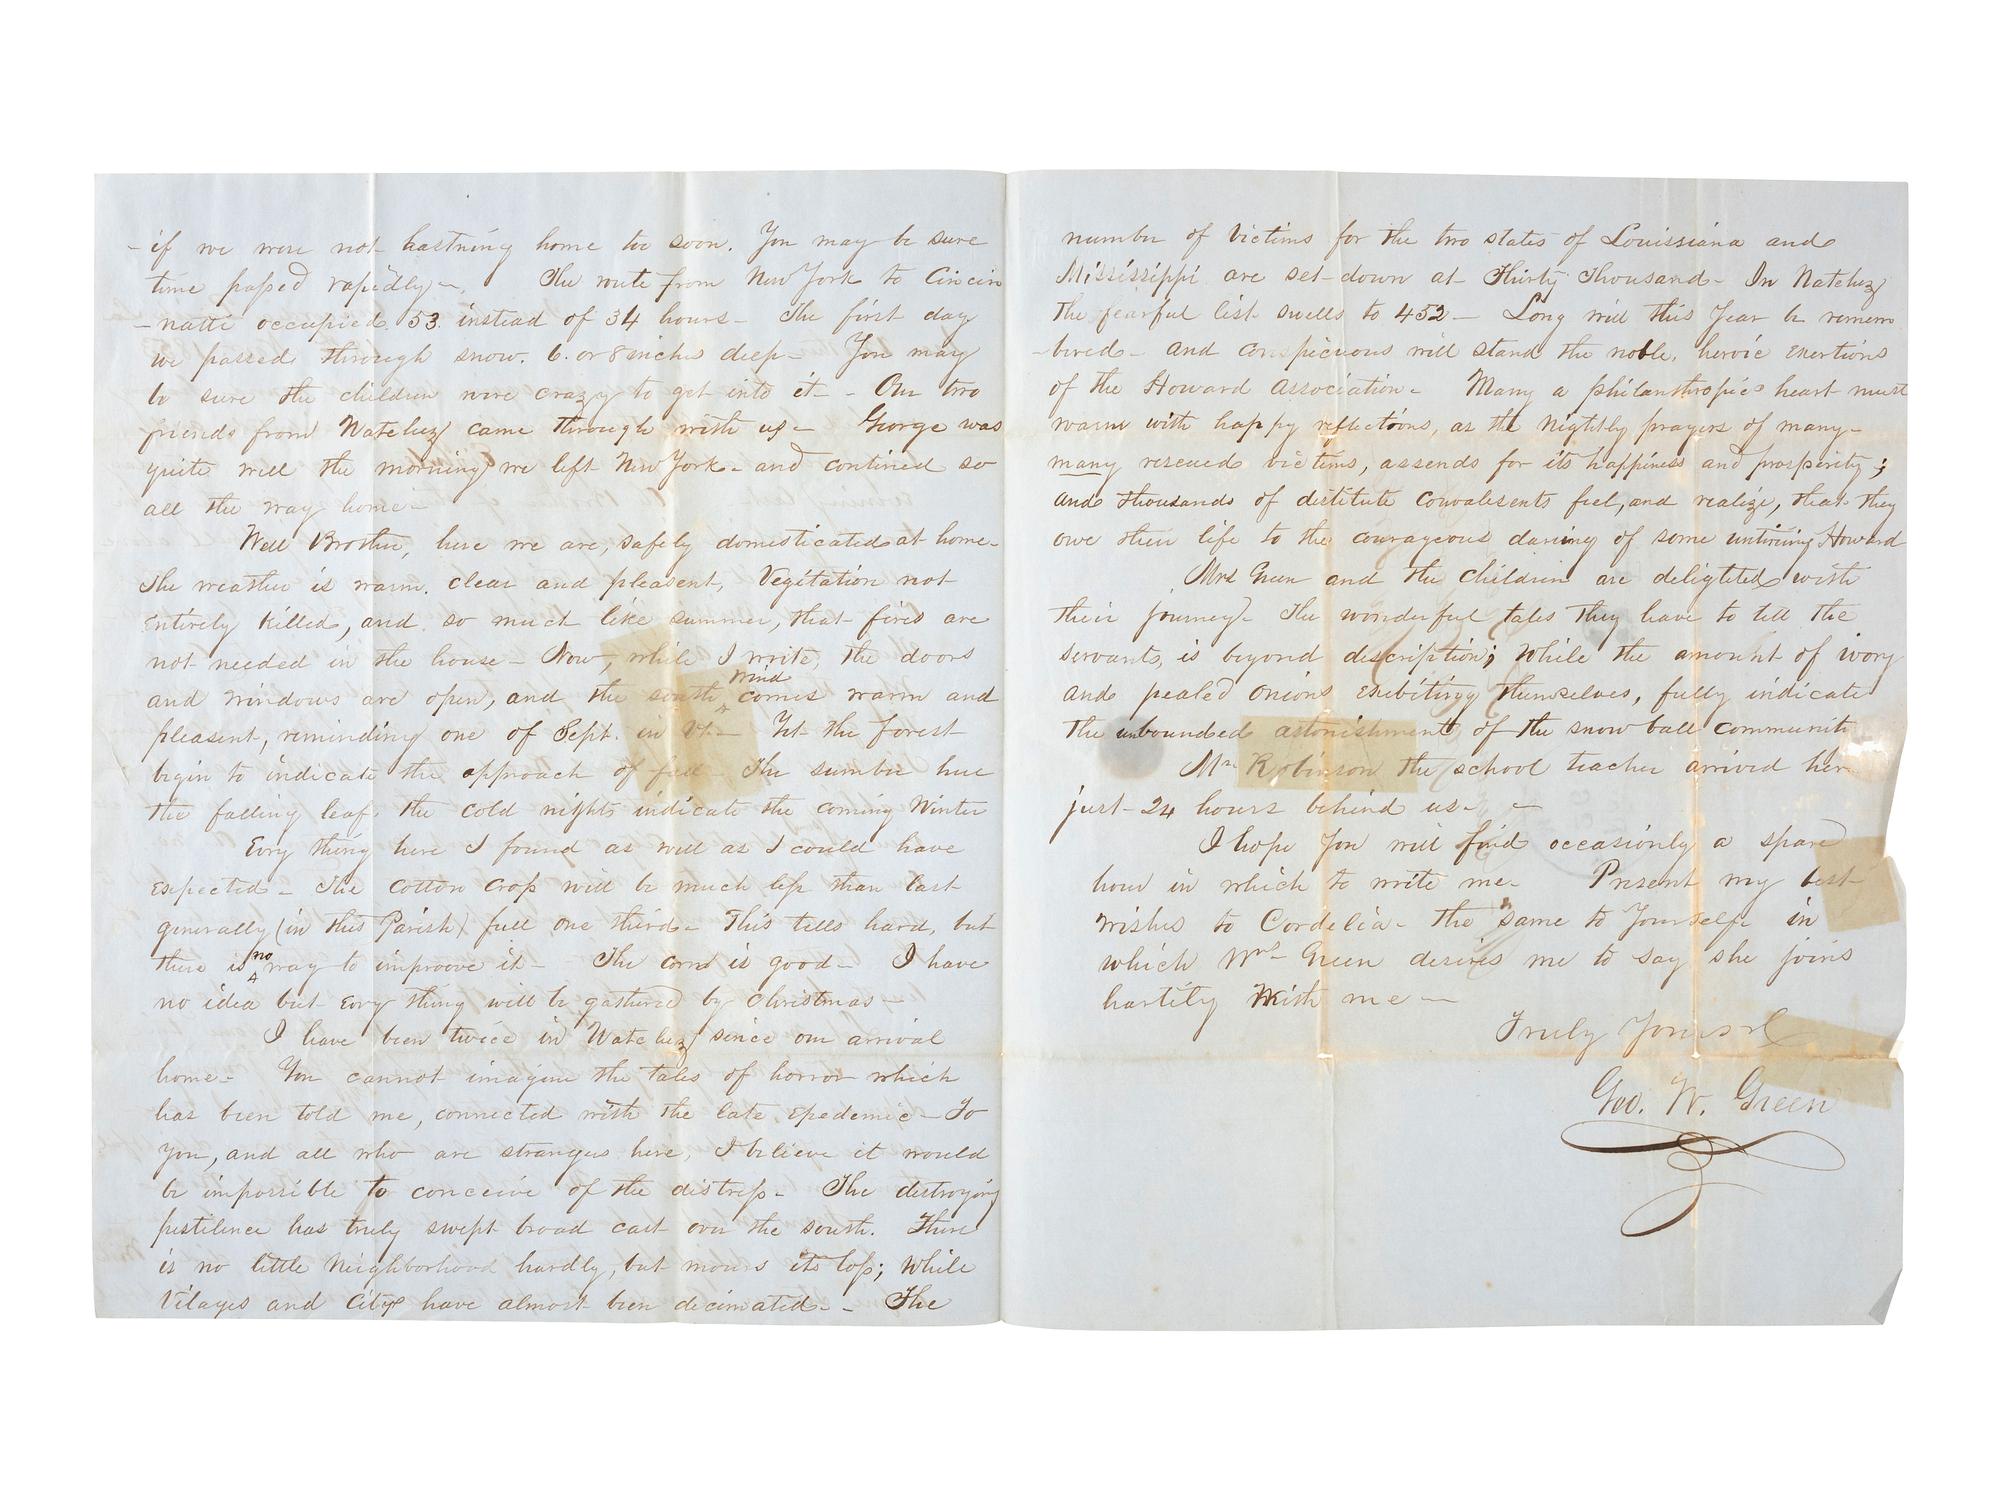 - if we were not hastning home too soon. You may be sure
time passed rapidly -. The route from New York to Cincin
- natti occupied 53 instead of 34 hours - The first day
we passed through snow. 6. or 8 inches deep - You may
be sure the children were crazy to get into it - Our two
friends from Natchez came through with us - George was
quite well the morning we left New York - and contined so
all the way home -
Well Brother, here we are, safely domesticated at home -
The weather is warm. clear and pleasent, Vegitation not
entirely killed, and so much like summer, that fires are
not needed in the house - Now, while I write, the doors
and windows are open, and the south wind comes warm and
pleasent, reminding one of Sept. in Vt - Yet the forest
begin to indicate the approach of fall - The sumber hue
the falling leaf, the cold nights indicate the coming Winter
Evry thing here I found as well as I could have
expected - The cotton crop will be much less than last
generally (in this Parish) full one third - This tells hard, but
there is no way to improove it - The corn is good - I have
no idea but Evry thing will be gathered by Christmas -
I have been twice in Natchez since our arrival
home - You cannot imagine the tales of horror which
has been told me, connected with the late Epedemic - To
you, and all who are strangers here, I believe it would
be impossible to conceive of the distress - The destroying
pestilence has truly swept broad cast over the south. There
is no little Neighborhood hardly, but mours its loss; While
Vilages and Citys have almost been decimated - - The
number of Victims for the two states of Louissiana and
Mississippi are set down at Thirty Thousand - In Natchez
the fearful list swells to 452 - Long will this Year be remem
- bered - and conspicuous will stand the noble, heroic exertions
of the Howard Association - Many a philanthropic heart must
warm with happy reflections, as the nightly prayers of many -
many rescued victims, assends for its happiness and prosperity;
and thousands of distitute convalesents feel, and realize, that they
owe their life to the courageous daring of some untiring Howard
Mrs Green and the children are delighted with
their journey - The wonderful tales they have to tell the
servants, is beyond description; While the amount of ivory
and pealed onions exibiting themselves, fully indicate
the unbounded astonishment of the snow ball communit
Mr Robinson the school teacher arrived her
just 24 hours behind us - -
I hope You will find occasionly a spare
hour in which to write me - Present my best
wishes to Cordelia - the same to Yourself in
which Mrs Green desires me to say she joins
hartily With me -
Truly Yours
Geo. W. Green